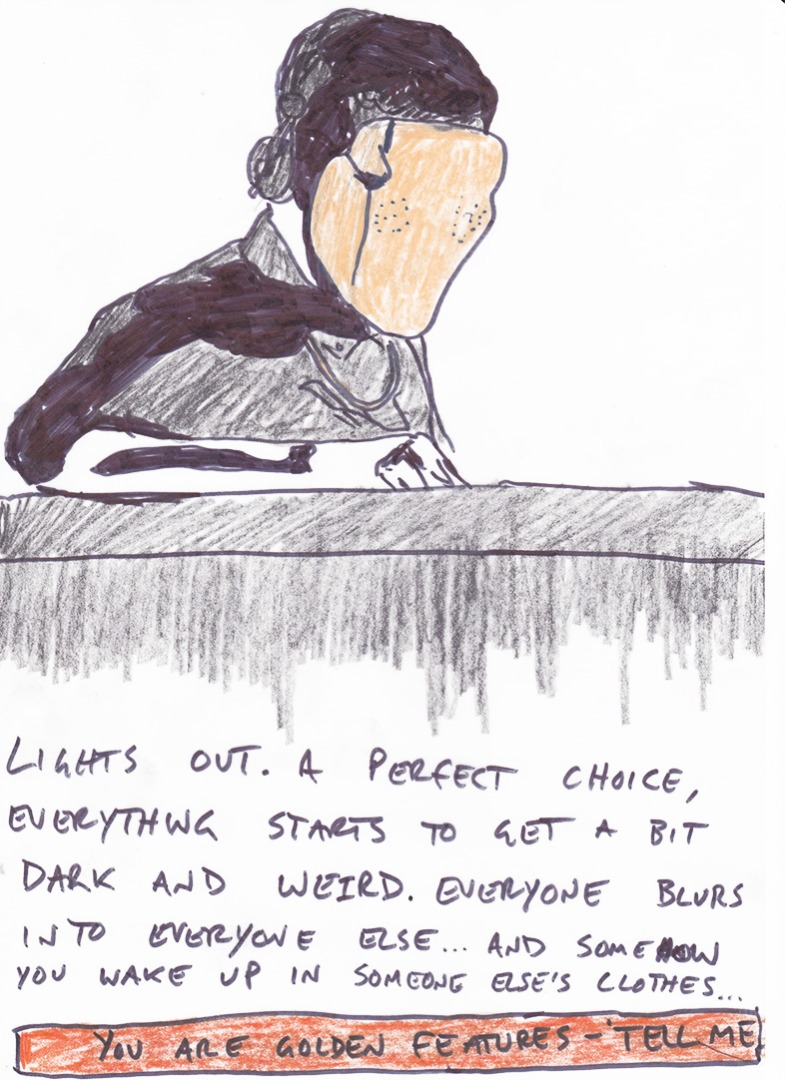 LIGHTS OUT. A PERFECT CHOICE,
EVERYTHING STARTS TO GET A BIT
DARK AND WEIRD. EVERYONE BLURS
INTO EVERYONE ELSE... AND SOMEHOW
YOU WAKE UP IN SOMEONE ELSE'S CLOTHES...
YOU ARE GOLDEN FEATURES - 'TELL ME